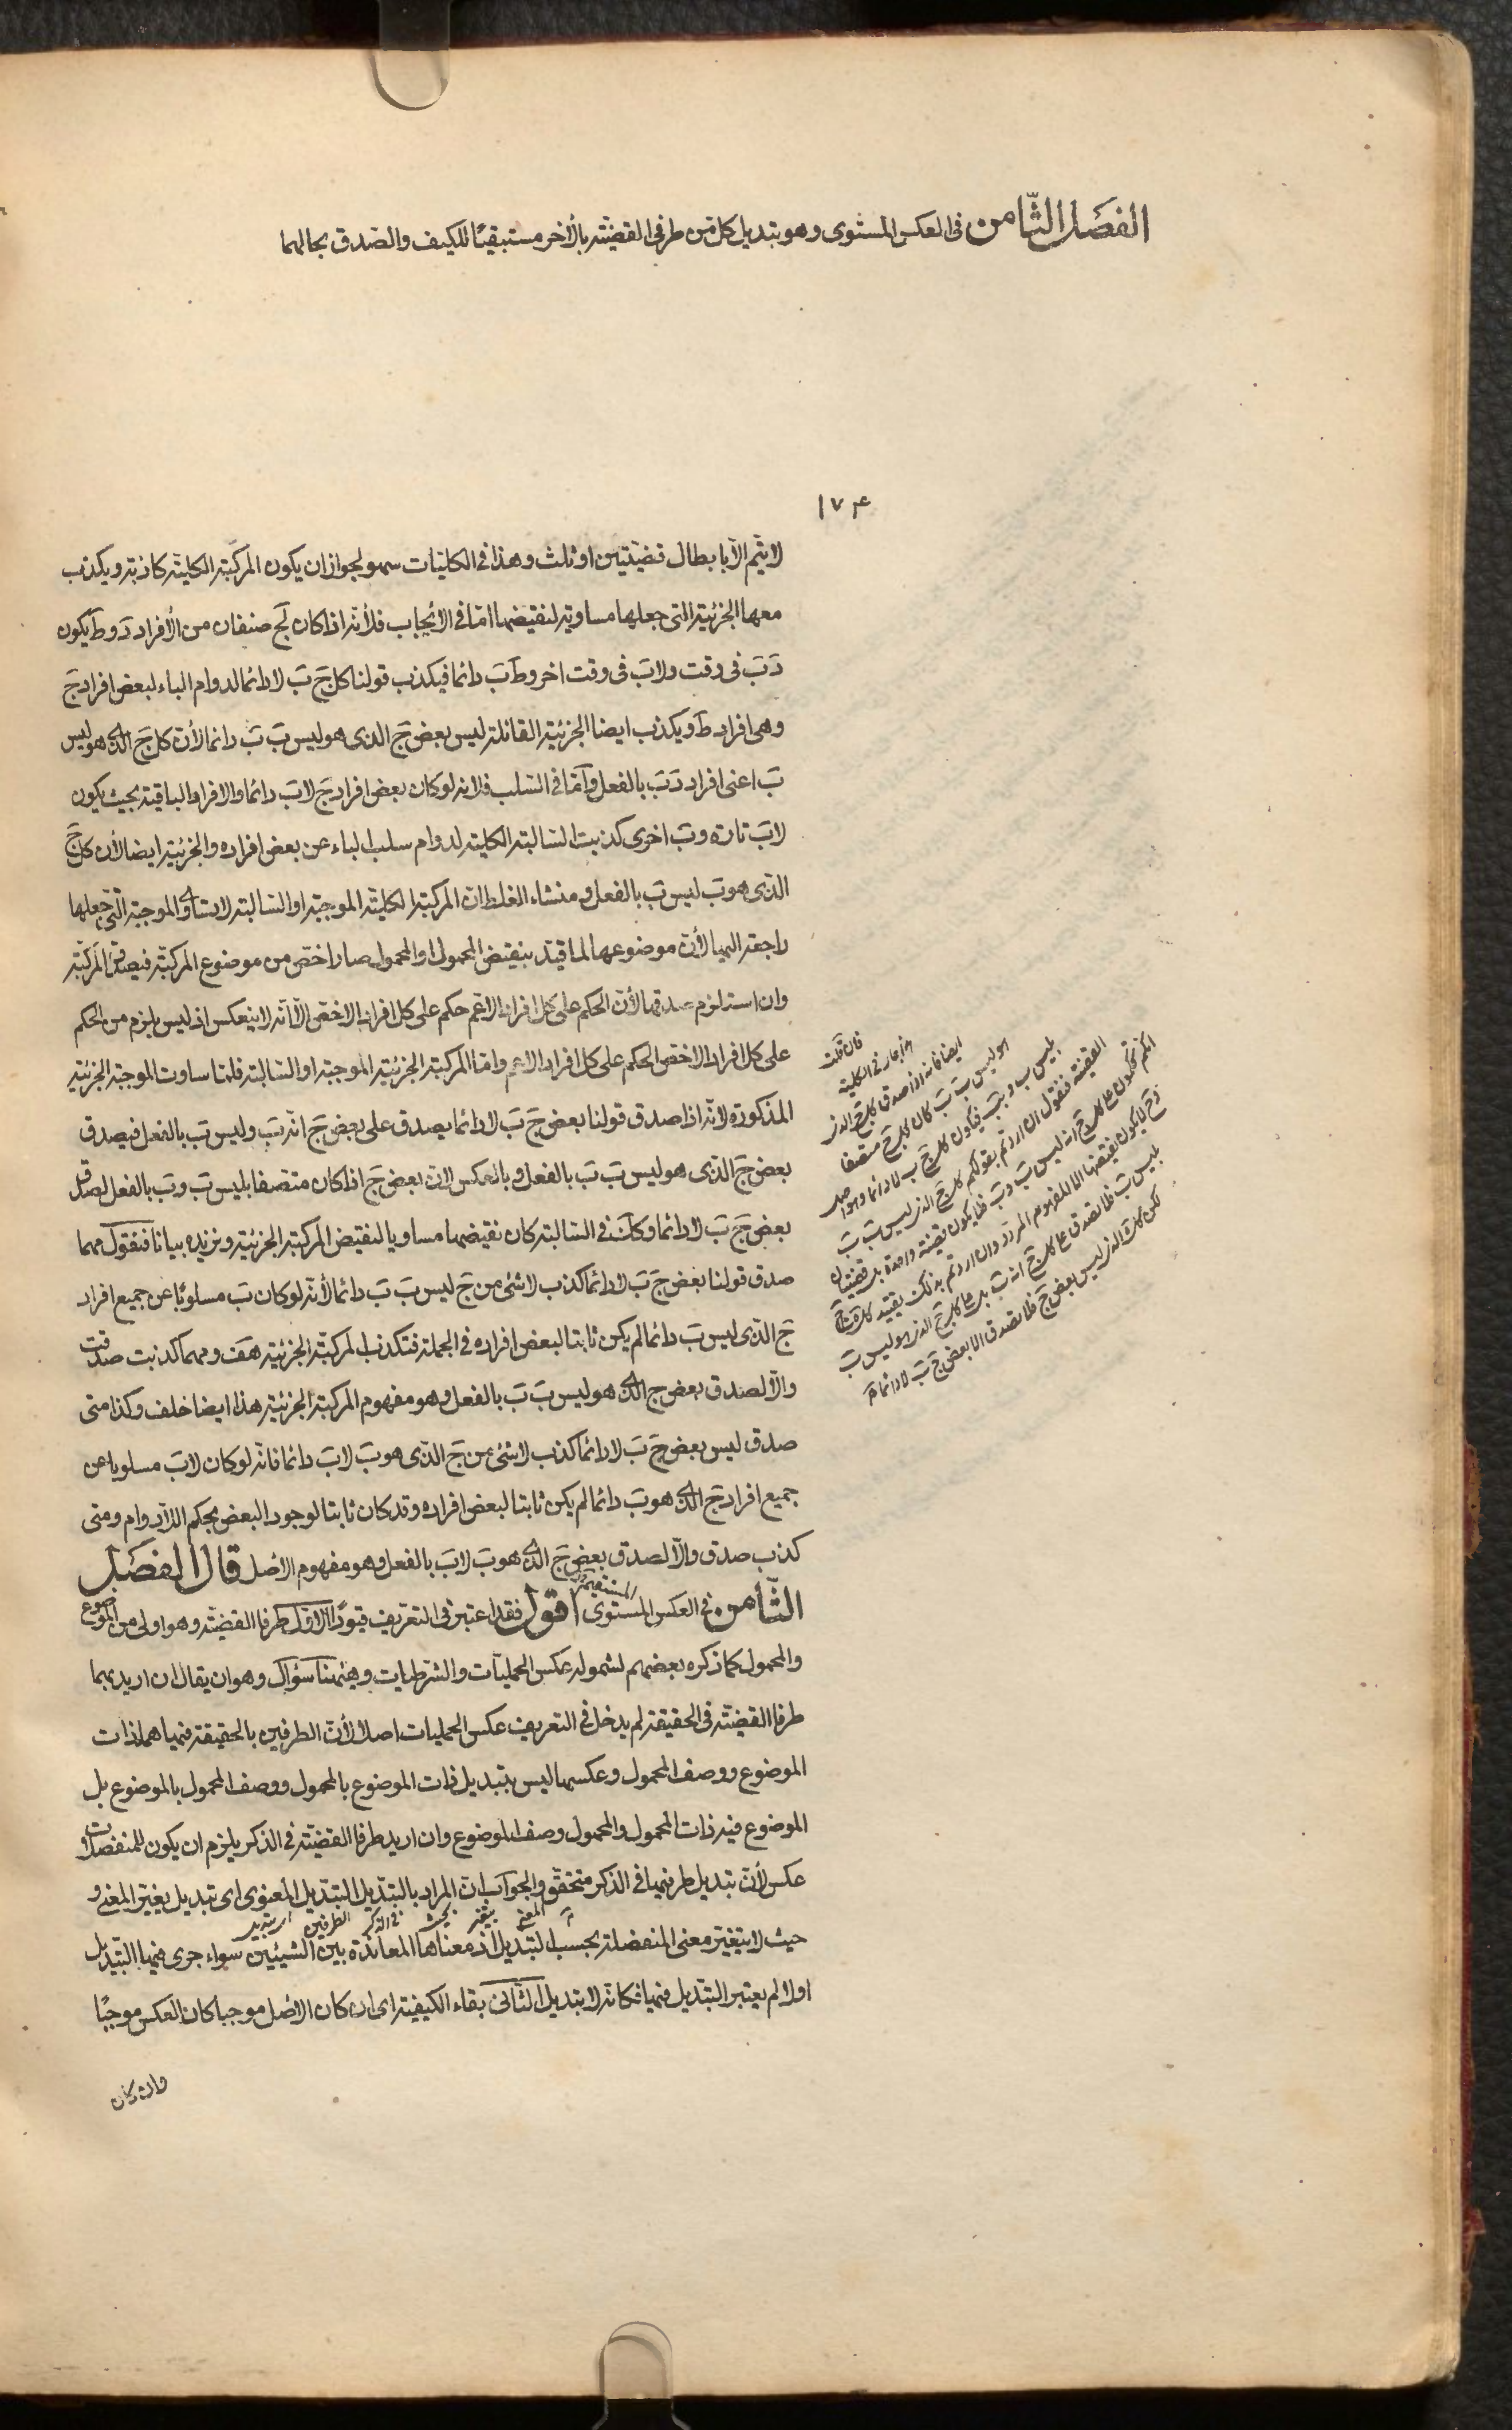 الفصل الثامن فى العكس المستوى وهو تبديل كل من طرفى القضيّة بالأخر مستبقيًا للكيف والصدق بحالهما
١٧٤
لا يتم الّا بابطال قضيّتين او ثلث وهذا فى الكليّات سهو لجواز ان يكون المركّبة الكليّة كاذبة ويكذب
معها الجزئيّة التى جعلها مساوية لنقيضها امّا فى الأيجاب فلأنّه اذا كان لج صنفان من الأفراد دَ وطَ يكون
دَ بَ فى وقت ولا بَ فى وقت اخر وطَ بَ دائما فيكذب قولنا كل جَ بَ لا دائما لدوام الباء لبعض افراد جَ
وهى افراد طَ ويكذب ايضا الجزئيّة القائلة ليس بعض جَ الذى هو ليس بَ بَ دائما لأنّ كل جَ الذى هو ليس
بَ اعنى افراد دَ بَ بالفعل وامّا فى السّلب فلانه لو كان بعض افراد جَ لا بَ دائما والافراد الباقية بحيث يكون
لا بَ تارة وب اخرى كذبت السّالبة الكلية لدوام سلب الباء عن بعض افراده والجزئيّة ايضا لأن كل جَ
الذى هو بَ ليس بَ بالفعل ومنشاء الغلط انّ المركّبة الكليّة الموجبة او السّالبة لا يساوى الموجبة التى جعلها
راجعة اليها لأنّ موضوعها لما قيّد بنقيض المحمول او المحمول صار اخصّ من موضوع المركّبة فيصدق المركّبة
وان استلزم صدقها لأنّ الحكم على كل افراد الاعم حكم على كل افراد الاخصّ الّا انّه لا ينعكس اذ ليس يلزم من الحكم
على كل افراد الاخصّ الحكم على كل افراد الاعم وامّا المركّبة الجزئيّة الموجبة او السّالبة فلمّا ساوت الموجبة الجزئيّة
المذكورة لانّه اذا صدق قولنا بعض جَ بَ لا دائما يصدق على بعض جَ انّه بَ وليس بَ بالفعل فيصدق
بعض جَ الذى هو ليس بَ بَ بالفعل وبالعكس لانّ بعض جَ اذا كان متّصفا بليس بَ وبَ بالفعل لصدق
بعض جَ بَ لا دائما وكك فى السّالبة كان نقيضها مساويا لنقيض المركّبة الجزئيّة ونزيده بيانا فنقول مهما
صدق قولنا بعض جَ بَ لا دائما كذب لا شئ من جَ ليس بَ بَ دائما لأنّه لو كان بَ مسلوبًا عن جميع افراد
جَ الذى ليس بَ دائما لم يكن ثابتا لبعض افراده فى الجملة فتكذب المركّبة الجزئيّة هف ومهما كذبت صدقت
والّا لصدق بعض ج الذى هو ليس بَ بَ بالفعل وهو مفهوم المركّبة الجزئيّة هذا ايضا خلف وكذا متى
صدق ليس بعض جَ بَ لا دائما كذب لا شئ من جَ الذى هو بَ لا بَ دائما فانّه لو كان لا بَ مسلوبا عن
جميع افراد جَ الذى هو بَ دائما لم يكن ثابتا لبعض افراده وقد كان ثابتا لوجود البعض بحكم اللّادوام ومتى
كذب صدق والّا لصدق بعض جَ الذى هو بَ لا بَ بالفعل وهو مفهوم الاصل قال الفصل
الثّامن فى العكس المستوى اقول فقد اعتبر فى التعريف قيودًا الاوّل طرفا القضيّة وهو اولى من الموضوع
والمحمول كما ذكره بعضهم لشموله عكس الحمليّات والشرطيات وهٰهنا سؤال وهو ان يقال ان اريد بهما
طرفا القضيّة فى الحقيقة لم يدخل فى التعريف عكس الحمليات اصلا لأنّ الطرفين بالحقيقة فيها هما ذات
الموضوع ووصف المحمول وعكسها ليس بتبديل ذات الموضوع بالمحمول ووصف المحمول بالموضوع بل
الموضوع فيه ذات المحمول والمحمول وصف الموضوع وان اريد طرفا القضيّة فى الذكر يلزم ان يكون للمنفصلات
عكس لأنّ تبديل طرفيها فى الذكر متحقّق والجواب انّ المراد بالتبديل التبديل المعنوى اى تبديل يغيّر المعنى و
حيث لا يتغيّر معنى المنفصلة بحسب التبديل اذ معناها المعاندة بين الشيئين سواء جرى فيها التبديل
او لا لم يعتبر التبديل فيها فكانّه لا تبديل الثّانى بقاء الكيفيّة اى ان كان الاصل موجبا كان العكس موجبًا
وان كان
فان قلت
هذا جار فى الكلية
ايضا فانه اذا صدق كل ج الذى
هو ليس بَ بَ كان كل ج متصفا
بليس ب وبب فيكون كل ج ب لا دائما وهو اصل
القضية فنقول ان اردتم بقولكم كل ج الذى ليس ب ب
انكم تحكمون على كل ج انه ليس ب وب فلا يكون قضية واحدة بل قضيتان
وح لا يكون نقيضها الا المفهوم المردد وان اردتم بذلك تقييد كل ج
بليس ب فلا تصدق على كل ج انه ب بل على كل ج الذى هو ليس ب
لكن كل ج الذى ليس بعض ج فلا تصدق الا بعض ج ب لا دائما